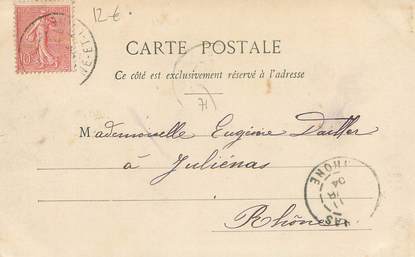 12 €
CARTE POSTALE
Ce côté est exclusivement réservé à l'adresse
71
Mademoiselle Eugénie Dailler
à Juliénas
Rhône
RHONE
04
10